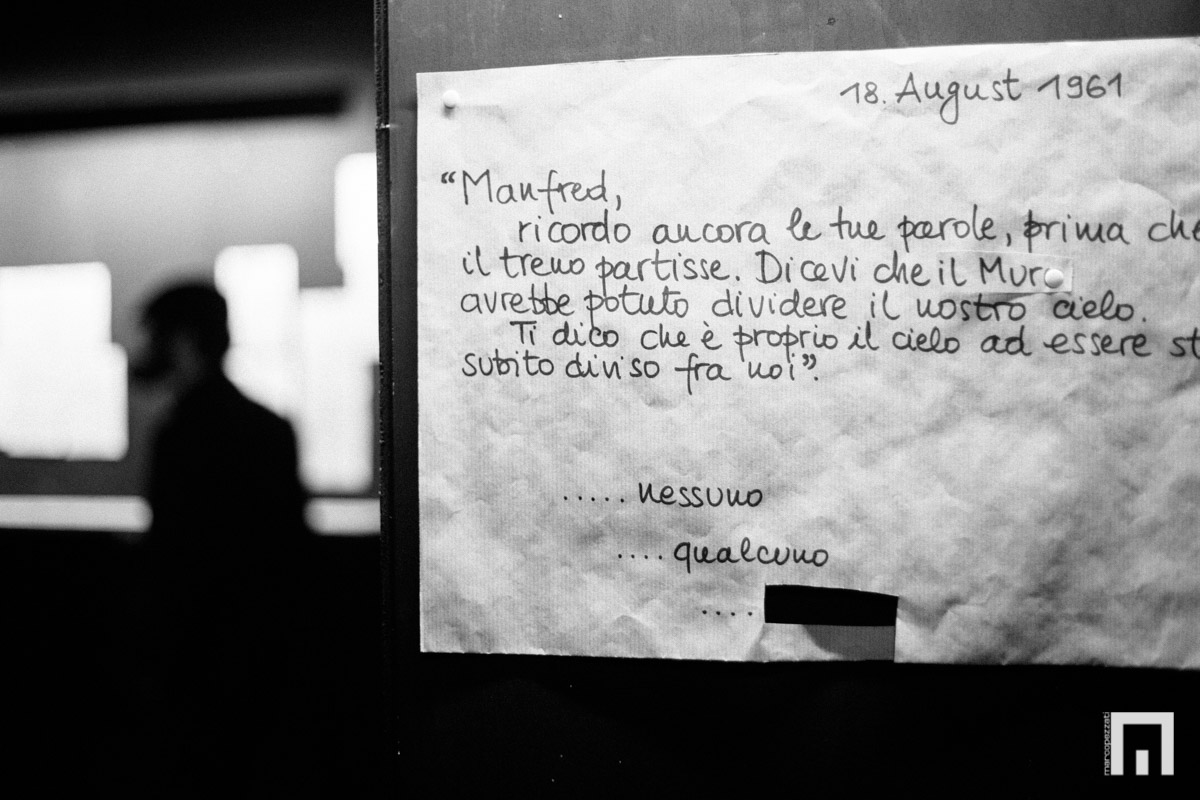 18. August 1961
“Manfred,
ricordo ancora le tue parole, prima che
il treno partisse. Dicevi che il Muro
avrebbe potuto dividere il nostro cielo.
Ti dico che è proprio il cielo ad essere st
subito diviso fra noi”.
..... nessuno
.... qualcuno
....
marcopezzati